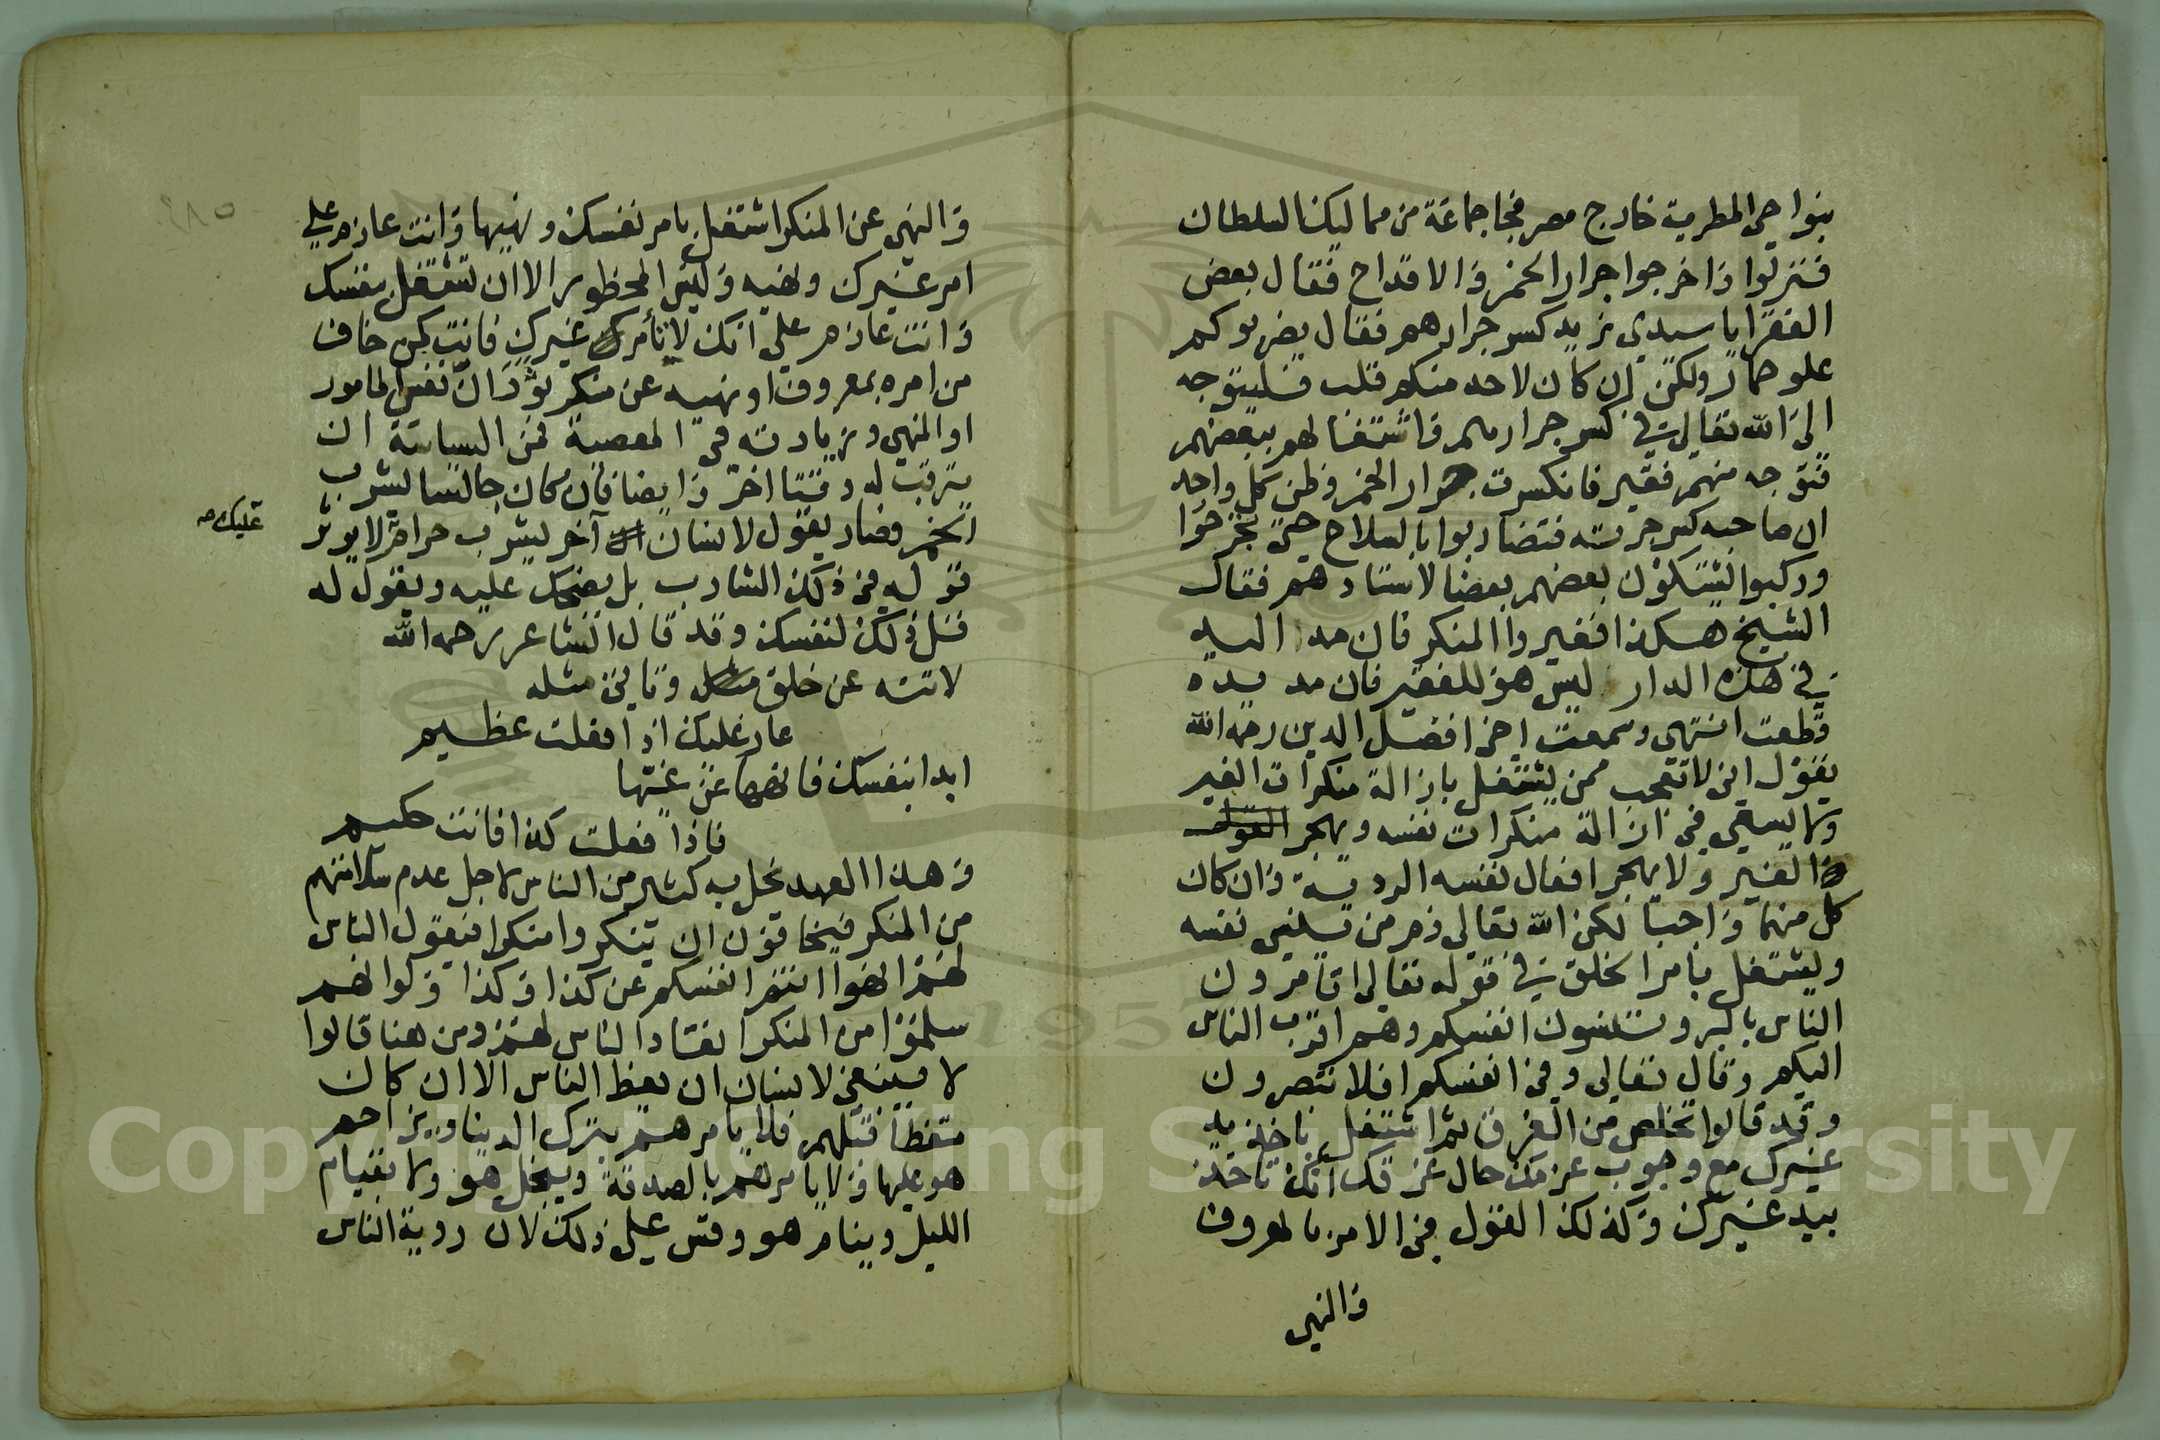 بنواحي المطرية خارج مصر فجا جماعة من مماليك السلطان
فنزلوا واخرجوا جرار الخمر والاقداح فقال بعض
الفقرا يا سيدي نريد كسر جرارهم فقال يضربوكم
علوحمار ولكن ان كان لاحد منكم قلب فليتوجه
الى الله تعالى في كسر جرارهم واشتغالهم ببعضهم
فتوجه منهم فقير فانكسرت جرار الخمر وظن كل واحد
ان صاحبه كسر جرته فتضاربوا بالسلاح حتى تجرحوا
وركبوا يشتكون بعضهم بعضا لاستادهم فقال
الشيخ هكذا فغيروا المنكر فان مد اليد
في هذه الدار ليس هو للفقير فان مد يده
قطعت انتهى وسمعت اخي افضل الدين رحمه الله
يقول اني لاتعجب ممن يشتغل بازالة منكرات الغير
ولا يسعى في ازالة منكرات نفسه ويهجر
الغير ولا يهجر افعال نفسه الردية وان كان
كل منهما واجبا لكن الله تعالى ذم من نسي نفسه
ويشتغل بامر الخلق في قوله تعالى اتامرون
الناس بالبر وتنسون انفسكم وهم اقرب الناس
اليكم وقال تعالى وفي انفسكم افلا تبصرون
وقد قالوا تخلص من الغرق ثم اشتغل باخذ يد
غيرك مع وجوب عزمك حال غرقك انك تاخذ
بيد غيرك وكذلك القول في الامر بالمعروف
والنهي
والنهي عن المنكر اشتغل بامر نفسك ونهيها وانت عازم علي
امر غيرك ونهيه وليس المحظور الا ان تشتغل بنفسك
وانت عازم علي انك لا تأمر غيرك فانت كمن خاف
من امره بمعروف او نهيه عن منكر ثوران نفس المامور
او المنهي وزيادته في المعصية فمن السياسة ان
يترقب له وقتا اخر وايضا فان كان جالسا يشرب
الخمر وصار يقول لانسان آخر يشرب حرام لا يوثر
عليك صح
قوله في ذلك الشارب بل يضحك عليه ويقول له
قل ذلك لنفسك وقد قال الشاعر رحمه الله
لا تنه عن خلق وتاتي مثله
عار عليك اذا فعلت عظيم
ابدا بنفسك فانهها عن غيها
فاذا فعلت كذا فانت حكيم
وهذا العهد يخل به كثير من الناس لاجل عدم سلامتهم
من المنكر فيخافون ان ينكروا منكرا فيقول الناس
لهم انهوا انتم انفسكم عن كذا وكذا ولو انهم
سلموا من المنكر انقاد الناس لهم ومن هنا قالوا
لا ينبغي لانسان ان يعظ الناس الا ان كان
متعظا قبلهم فلا يامرهم بترك الدنيا ويزاحم
هو عليها ولا يامرهم بالصدقة ويبخل هو ولا بقيام
الليل وينام هو وقس علي ذلك لان روية الناس